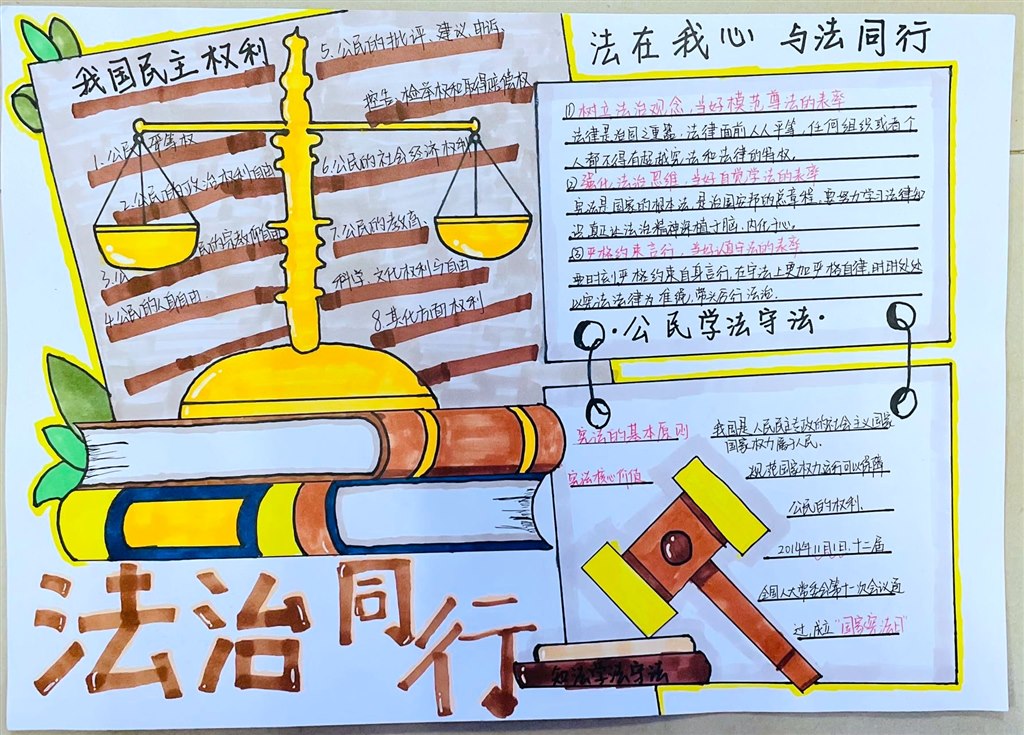 我国民主权利
1.公民平等权
2.公民的政治权利自由
3.公民的宗教信仰自由
4.公民的人身自由.
5.公民的批评、建议、申诉、
控告、检举权和取得赔偿权
6.公民的社会经济权利
7.公民的教育、
科学、文化权利与自由
8.其他方面权利
法在我心 与法同行
①树立法治观念,当好模范尊法的表率
法律是治国之重器.法律面前人人平等,任何组织或者个
人都不得有超越宪法和法律的特权。
②强化法治思维,当好自觉学法的表率
宪法是国家的根本法,是治国安邦的总章程,要努力学习法律知
识真让法治精神深植于脑、内化于心。
③严格约束言行,当好认真守法的表率
要时刻严格约束自身言行,在守法上更加严格自律,时时处处
以宪法法律为准绳,带头厉行法治.
·公民学法守法·
宪法的基本原则
宪法核心价值
我国是人民民主专政的社会主义国家
国家权力属于人民.
规范国家权力运行可以保障
公民的权利.
2014年11月1日.十二届
全国人大常委会第十一次会议通
过,成立"国家宪法日"
知法学法守法
法治同行